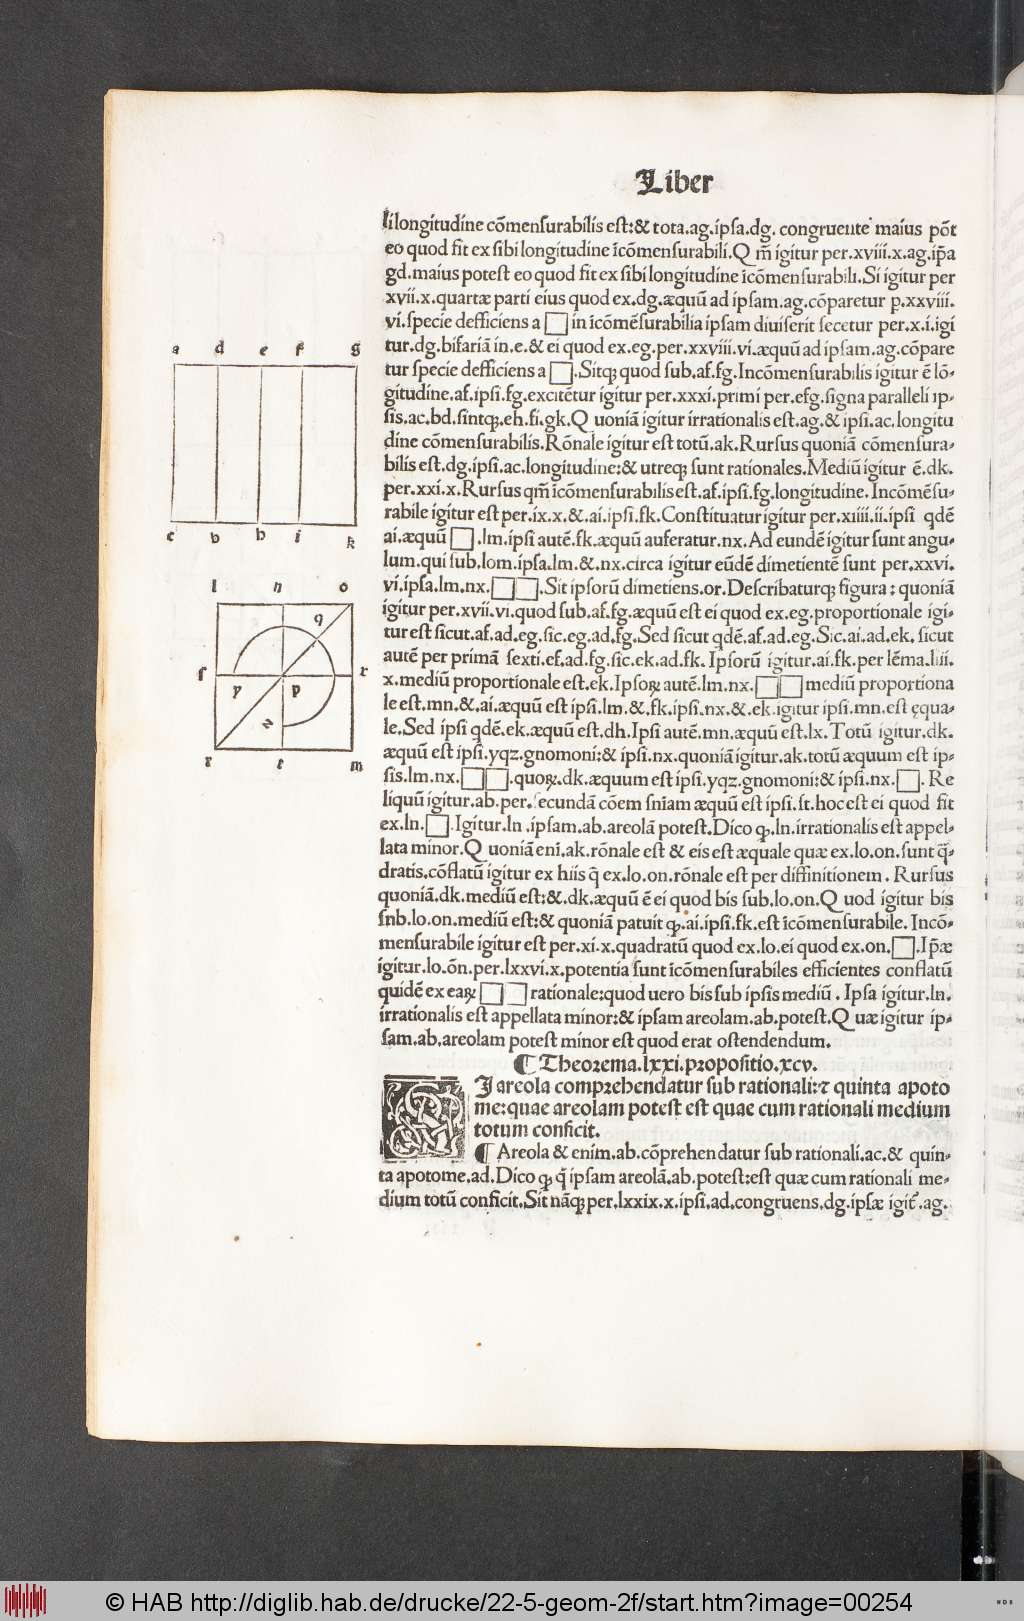 Liber
li longitudine cōmensurabilis est: & tota.ag.ipsa.dg. congruente maius põt
eo quod fit ex sibi longitudine īcōmensurabili. Q m̄ igitur per.xviii.x.ag.ip̄a
gd.maius potest eo quod fit ex sibi longitudine īcōmensurabili.Si igitur per
xvii.x.quartæ parti eius quod ex.dg.æquū ad ipsam.ag.cōparetur p.xxviii.
vi.specie defficiens a □ in īcōmēsurabilia ipsam diuiserit secetur per.x.i.igi
tur.dg.bifariā in.e.& ei quod ex.eg.per.xxviii.vi.æquū ad ipsam.ag.cōpare
tur specie defficiens a □.Sitqꝫ quod sub.af.fg.Incōmensurabilis igitur ē lō-
gitudine.af.ipsi.fg.excitētur igitur per.xxxi.primi per.efg.signa paralleli ip-
sis.ac.bd.sintqꝫ.eh.fi.gk.Q uoniā igitur irrationalis est.ag.& ipsi.ac.longitu
dine cōmensurabilis.Rōnale igitur est totū.ak.Rursus quoniā cōmensura-
bilis est.dg.ipsi.ac.longitudine:& utreqꝫ sunt rationales.Mediū igitur ē.dk.
per.xxi.x.Rursus qm̄ īcōmensurabilis est.af.ipsi.fg.longitudine.Incōmēsu-
rabile igitur est per.ix.x.&.ai.ipsi.fk.Constituatur igitur per.xiiii.ii.ipsi qdē
ai.æquū □.lm.ipsi autē.fk.æquū auferatur.nx.Ad eundē igitur sunt angu-
lum.qui sub.lom.ipsa.lm.&.nx.circa igitur eūdē dimetientē sunt per.xxvi.
vi.ipsa.lm.nx.□□.Sit ipsorū dimetiens.or.Describaturqꝫ figura: quoniā
igitur per.xvii.vi.quod sub.af.fg.æquū est ei quod ex.eg.proportionale igi-
tur est sicut.af.ad.eg.sic.eg.ad.fg.Sed sicut qdē.af.ad.eg.Sic.ai.ad.ek. sicut
autē per primā sexti.ef.ad.fg.sic.ek.ad.fk.Ipsorū igitur.ai.fk.per lēma.liii.
x.mediū proportionale est.ek.Ipsoꝝ autē.lm.nx.□□ mediū proportiona
le est.mn.&.ai.æquū est ipsi.lm.&.fk.ipsi.nx.&.ek.igitur ipsi.mn.est ęqua-
le.Sed ipsi qdē.ek.æquū est.dh.Ipsi autē.mn.æquū est.lx.Totū igitur.dk.
æquū est ipsi.yqz.gnomoni:& ipsi.nx.quoniā igitur.ak.totū æquum est ip-
sis.lm.nx.□□.quoꝝ.dk.æquum est ipsi.yqz.gnomoni:& ipsi.nx.□. Re
liquū igitur.ab.per.secundā cōem sniam æquū est ipsi.st.hoc est ei quod fit
ex.ln.□.Igitur.ln.ipsam.ab.areolā potest.Dico qꝫ.ln.irrationalis est appel-
lata minor.Q uoniā eni.ak.rōnale est & eis est æquale quæ ex.lo.on.sunt q̄-
dratis.cōflatū igitur ex hiis q̄ ex.lo.on.rōnale est per diffinitionem. Rursus
quoniā.dk.mediū est:&.dk.æquū ē ei quod bis sub.lo.on.Q uod igitur bis
snb.lo.on.mediū est:& quoniā patuit qꝫ.ai.ipsi.fk.est īcōmensurabile. Incō-
mensurabile igitur est per.xi.x.quadratū quod ex.lo.ei quod ex.on.□.Ip̄æ
igitur.lo.ōn.per.lxxvi.x.potentia sunt īcōmensurabiles efficientes conflatū
quidē ex eaꝝ □□ rationale:quod uero bis sub ipsis mediū. Ipsa igitur.ln.
irrationalis est appellata minor:& ipsam areolam.ab.potest.Q uæ igitur ip-
sam.ab.areolam potest minor est quod erat ostendendum.
¶ Theorema.lxxi.propositio.xcv.
SI areola comprehendatur sub rationali:⁊ quinta apoto
me:quae areolam potest est quae cum rationali medium
totum conficit.
¶ Areola & enim.ab.cōprehendatur sub rationali.ac.& quin-
ta apotome.ad.Dico qꝫ q̄ ipsam areolā.ab.potest:est quæ cum rationali me-
dium totū conficit.Sit nāqꝫ per.lxxix.x.ipsi.ad.congruens.dg.ipsæ igit̃.ag.
a d e f g
c b h i k
l n o
q
s r
y p
z
r t m
© HAB http://diglib.hab.de/drucke/22-5-geom-2f/start.htm?image=00254